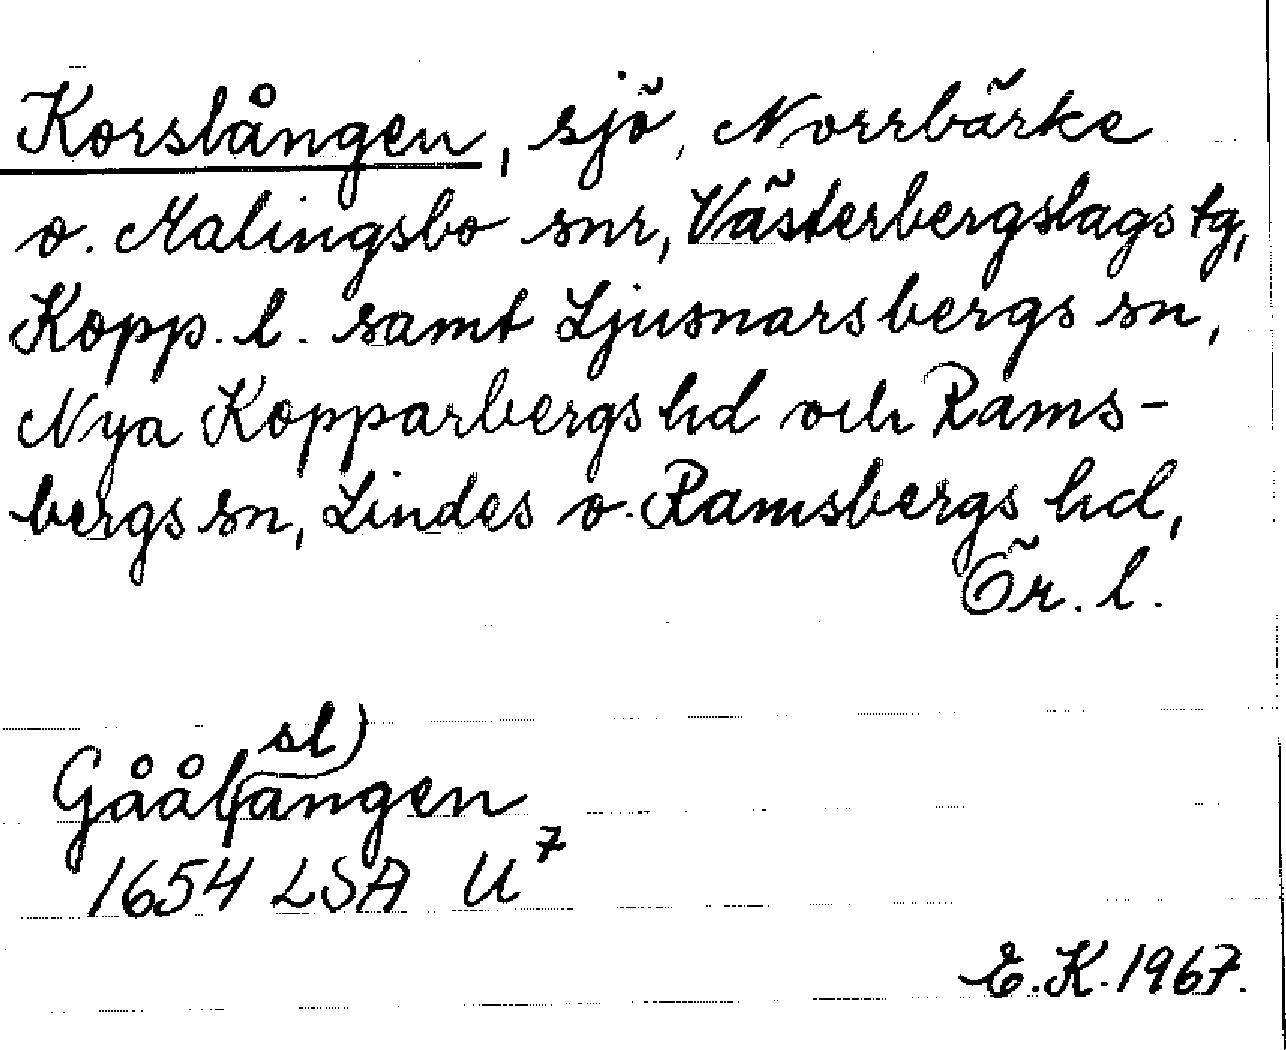 Korslången, sjö, Norrbärke
o. Malingsbo snr, Västerbergslags tg,
Kopp. l. samt Ljusnarsbergs sn,
Nya Kopparbergs hd och Rams-
bergs sn, Lindes o. Ramsbergs hd,
Ör. l.
sl)
Gåålangen
1654 LSA U7
E.K. 1967.